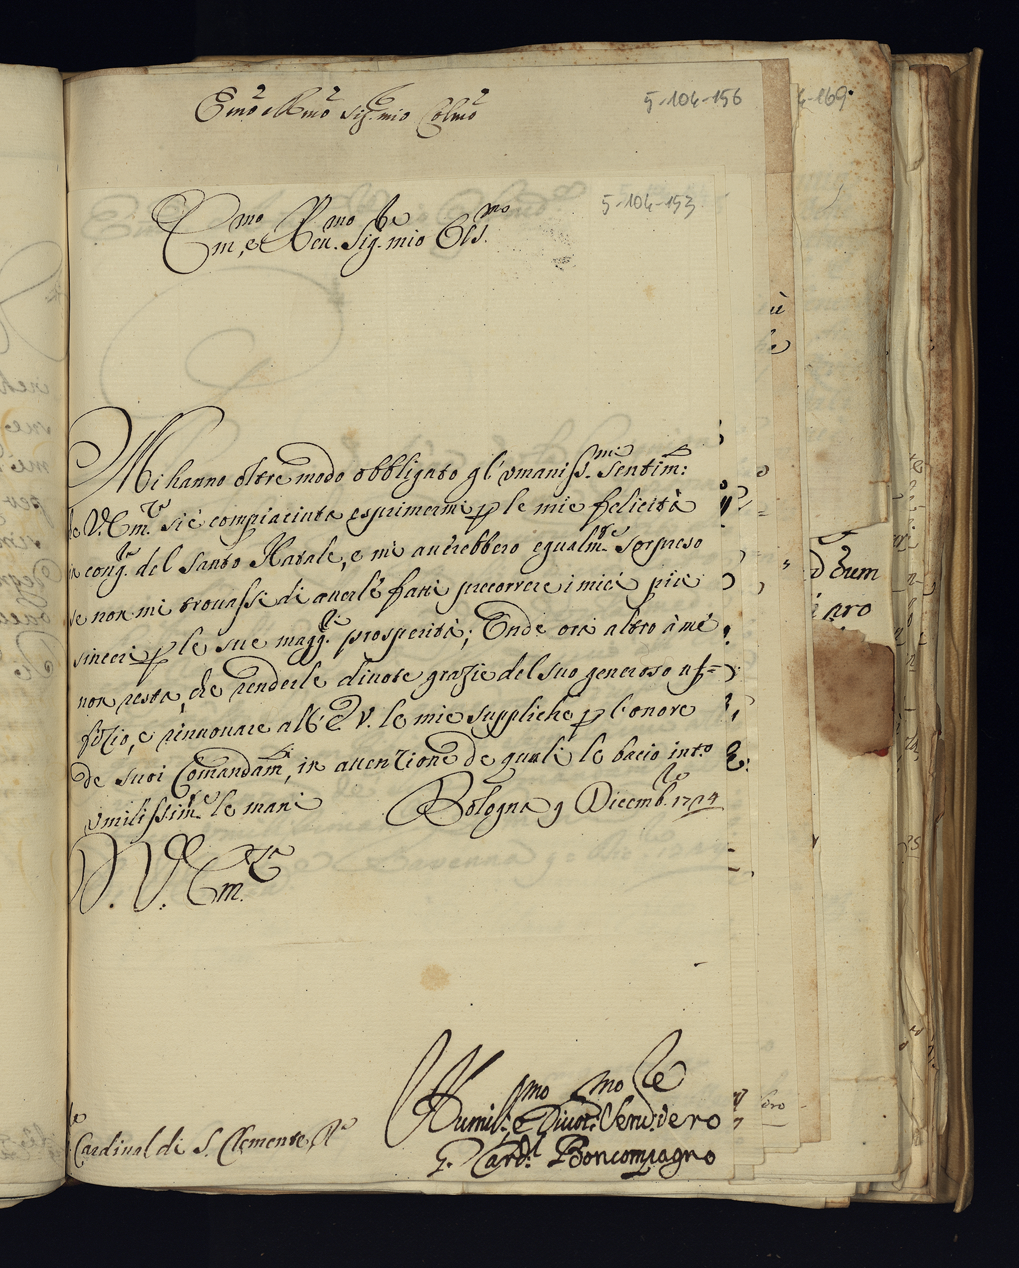 Emo e Rmo Sig.re mio Colmo
5-104-156
4-169
5-104-153
Em.mo, e Reu.mo Sig.re mio Oss.mo
Mi hanno oltre modo obbligato gl'vmaniss.mi sentim.ti
V. Em.za si è compiaciuta esprimermi p le mie felicità
cong.ra del Santo Natale, e mi auerebbero egualm.te sorpreso
se non mi trouassi di auerle fatti precorrere i miei più
sinceri p le sue magg.ri prosperità; Onde ora altro à me
non resta, che renderle diuote grazie del suo generoso uf=
fizio, e rinnouare all'E. V. le mie suppliche p l'onore
de suoi Comandam.ti, in attenzione de quali le bacio int.o
vmilissim.te le mani
Bologna 9 Dicemb.re 1724
D. V. Em.za
Humil.mo e Diuot.mo Seru.re vero
G. Card.l Boncompagno
Cardinal di S. Clemente R.o